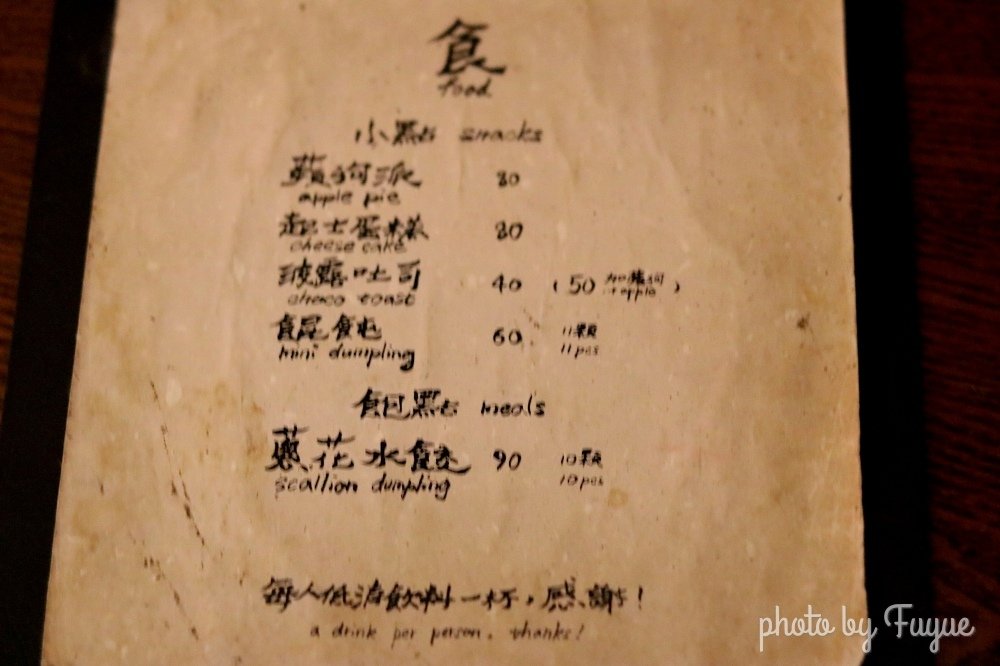 食
food
小點 snacks
蘋狗派 80
apple pie
起士蛋糕 80
cheese cake
波露吐司 40 ( 50 加蘋狗 )
choco toast + apple
餛飩 60 11顆
mini dumpling 11 pcs
飽點 meals
蔥花水餃 90 10顆
scallion dumpling 10 pcs
每人低消飲料一杯，感謝！
a drink per person. thanks!
photo by Fuyue